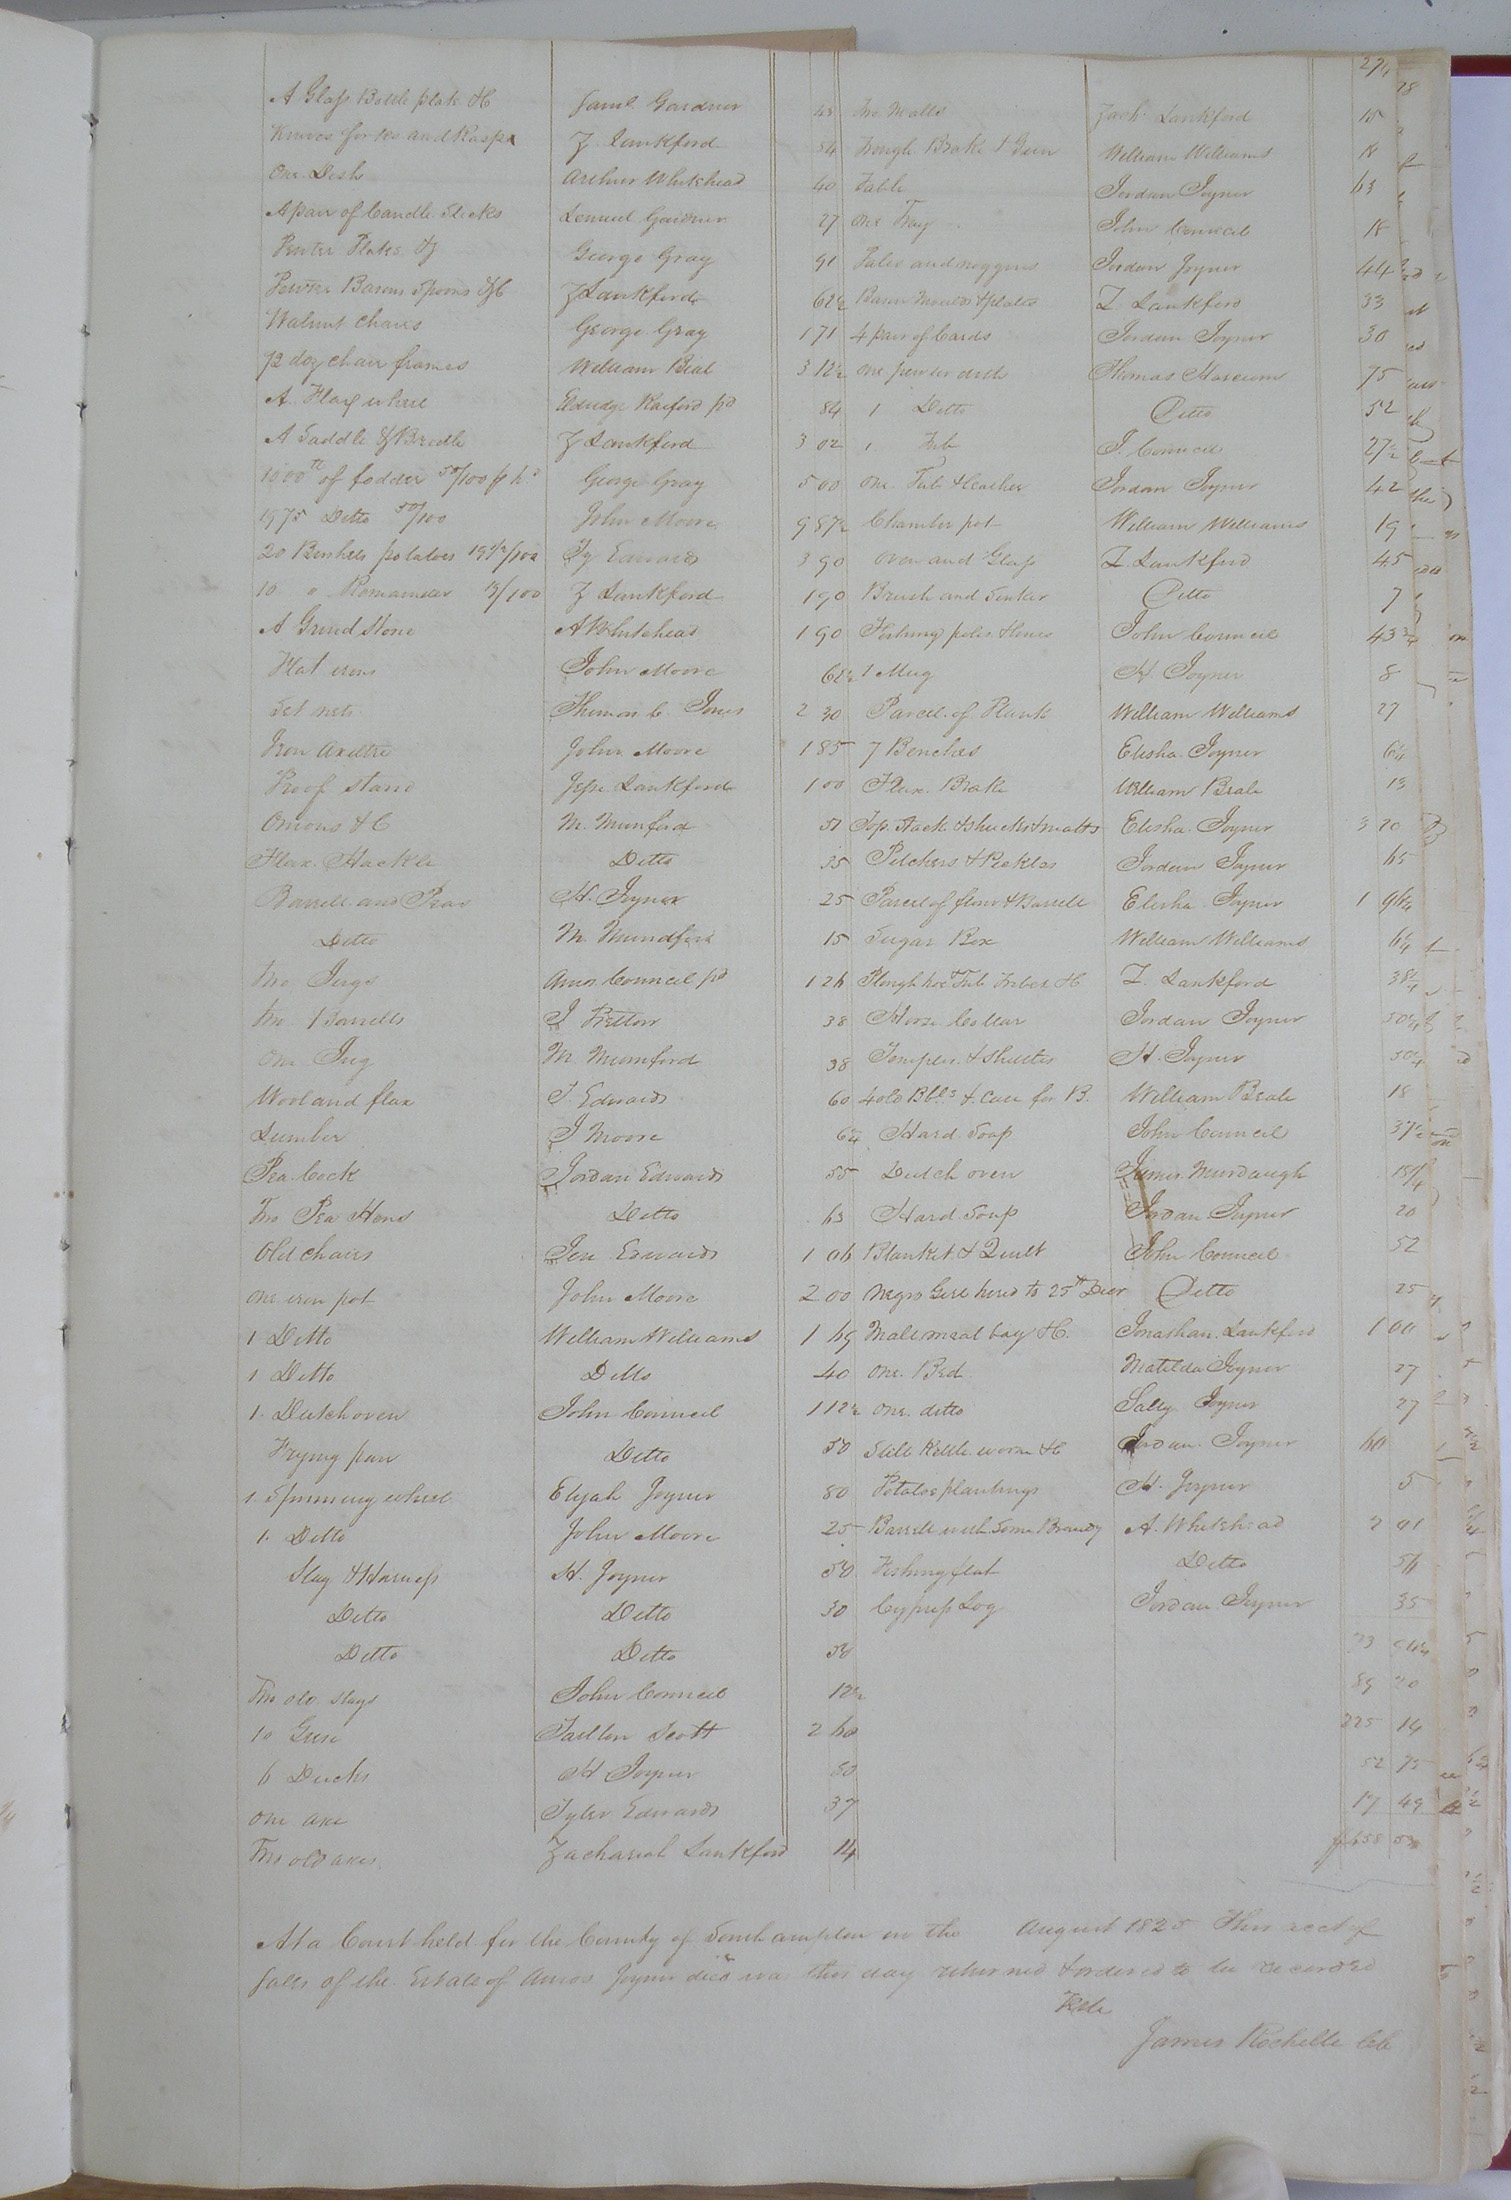 271
A Glass Bottle plate &C Saml. Gardner 43
Knives forks and Rasps Z Lankford 54
One Dish Arthur Whitehead 40
A pair of Candle Sticks Lemuel Gardner 27
Pewter Plates &C George Gray 91
Pewter Basons Spoons &C Z Lankford 62½
Walnut Chairs George Gray 1 71
½ doz chair frames William Beal 3 12½
A Flax wheel Eldridge Raiford pd 84
A Saddle & Bridle Z Lankford 3 02
1000 lb of fodder 50/100 p h. George Gray 5 00
1975 Ditto 50/100 John Moore 9 87½
20 Bushels potatoes 19½/100 Ty Edwards 3 90
10 " Remainder 19/100 Z Lankford 1 90
A Grind Stone A Whitehead 1 90
Flat irons John Moore 62½
Set nets Thomas C. Jones 2 30
Iron axeltre John Moore 1 85
Proof Stand Jesse Lankford 1 00
Onions &C M. Mumford 51
Flax Hackle Ditto 35
Barrell and Peas H. Joyner 25
Ditto M. Mundford 15
Two Jugs Amos Council pd 1 26
Two Barrells J Bretton 38
One Jug M. Mumford 38
Wool and flax T Edwards 60
Lumber J Moore 6¼
Pea Cock Jordan Edwards 55
Two Pea Hens Ditto 63
Old Chairs Edwards 1 06
One iron pot John Moore 2 00
1 Ditto William Williams 1 69
1 Ditto Ditto 40
1. Dutch oven John Council 1 12½
Frying pan Ditto 50
1. Spinning wheel Elijah Joyner 80
1. Ditto John Moore 25
Slay & Harness H. Joyner 50
Ditto Ditto 30
Ditto Ditto 50
Two old Slays John Council 12½
10 Geese Tarlton Scott 2 60
6 Ducks H Joyner 80
One axe Tyler Edwards 37
Two old axes Zachariah Lankford 14
Two Matts Zach. Lankford 15
Trough Brake & Gun William Williams 18
Table Jordan Joyner 63
One Tray John Council 18
Pales and noggins Jordan Joyner 44
Bason Moulds & plates Z. Lankford 33
4 pair of Cards Jordan Joyner 30
One pewter dish Thomas 75
1 Ditto Ditto 52
1 Tub J. Council 27½
One Tub & Leather Jordan Joyner 42
Chamber pot William Williams 19
Oven and Glass Z. Lankford 45
Brush and Sinker Ditto 7
Fishing poles & lines John Council 43¾
1 Mug H. Joyner 8
Parcel of Plank William Williams 27
7 Benches Elisha Joyner 6¼
Flax Brake William Beale 13
Top Stack & Shucks & matts Elisha Joyner 3 20
Pitchers & Pickles Jordan Joyner 65
Parcel of flour & Barrell Elisha Joyner 1 91¼
Sugar Box William Williams 6¼
Plough hoe Tub &C Z. Lankford
Horse Collar Jordan Joyner 50¼
Temples & Shuttes H. Joyner 30¼
4 old Bbls & Case for B. William Beale 18
Hard Soap John Council 37½
Dutch oven James Murdaugh
Hard Soap Jordan Joyner 20
Blanket & Quilt John Council 52
Negro Girl hired to 25th Decr Ditto 25
Male meal bag &C. Jonathan Lankford 1 00
One Bed Matilda Joyner 27
One ditto Sally Joyner 27
Still Kettle worm &C Jordan Joyner 60
Potatoe plantings H. Joyner 5
Barrell with Some Brandy A. Whitehead 2 01
Fishing flat Ditto 56
Cypress Log Jordan Joyner 35
89 20
225 14
52 75
17 49
At a Court held for the County of Southampton on the August 1825 This acct of
Sales of the Estate of Amos Joyner decd was this day returned & ordered to be recorded
Teste
James Rochelle Clk